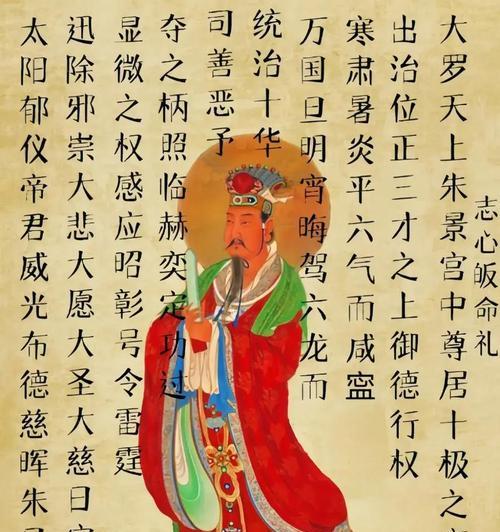 志心皈命礼
大罗天上朱景宫中尊居十极之
出治位正三才之上御德行权
寒肃暑炎平六气而咸
万国旦明宵晦驾六龙而
统治十华
司善恶予
夺之柄照临赫奕定功过
显微之权感应昭彰号令雷霆
迅除邪崇大悲大愿大圣大慈日
太阳郁仪帝君威光布德慈晖朱